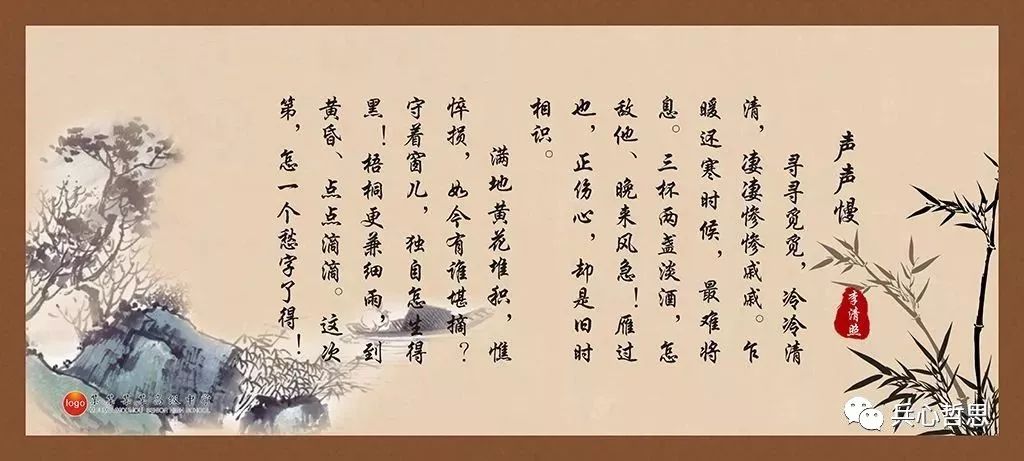 声声慢
李清照
寻寻觅觅，冷冷清
清，凄凄惨惨戚戚。乍
暖还寒时候，最难将
息。三杯两盏淡酒，怎
敌他、晚来风急！雁过
也，正伤心，却是旧时
相识。
满地黄花堆积，憔
悴损，如今有谁堪摘？
守着窗儿，独自怎生得
黑！梧桐更兼细雨，到
黄昏、点点滴滴。这次
第，怎一个愁字了得！
logo
某某某某高级中学
SENIOR HIGH SCHOOL
兵心哲思